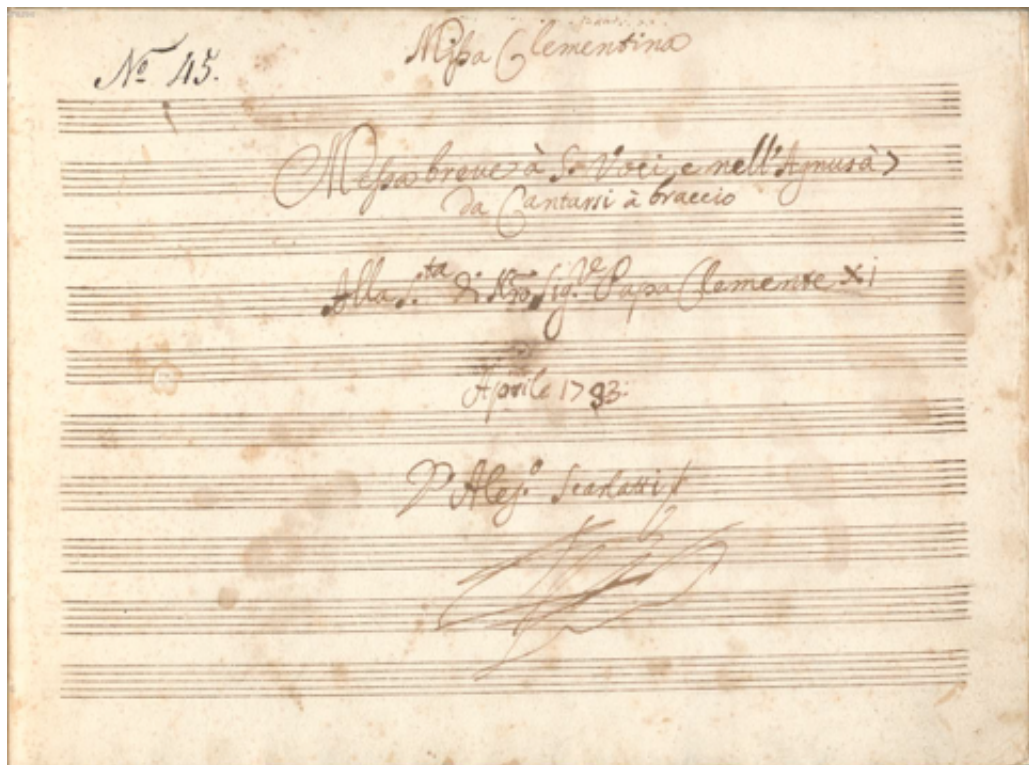 Nº 45.
Missa Clementina
Messa breve à 5. Voci, e nell'Agnus à 7
da Cantarsi à braccio
Alla S.ta di Nro Sig.re Papa Clemente XI
Aprile 1703.
D'Aless.o Scarlatti